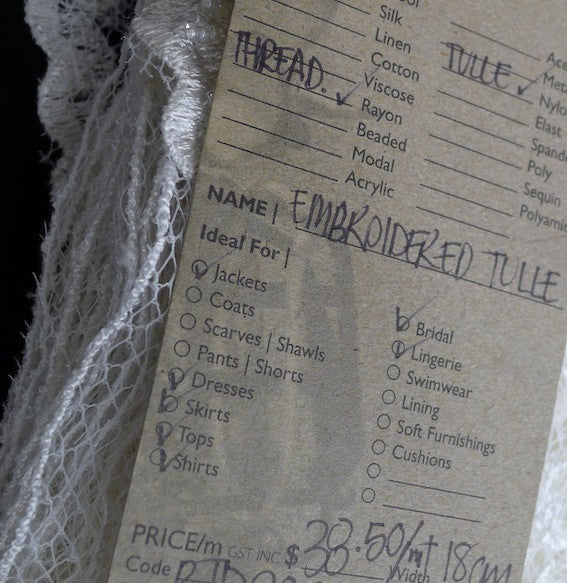 Silk
Linen
Cotton
THREAD. ✓ Viscose
Rayon
Beaded
Modal
Acrylic
TULLE ✓
Elast
Poly
Sequin
NAME | EMBROIDERED TULLE
Ideal For |
Jackets
Coats
Scarves | Shawls
Pants | Shorts
Dresses
Skirts
Tops
Shirts
Bridal
Lingerie
Swimwear
Lining
Soft Furnishings
Cushions
PRICE/m GST INC $38.50/mt 18cm
Code Width